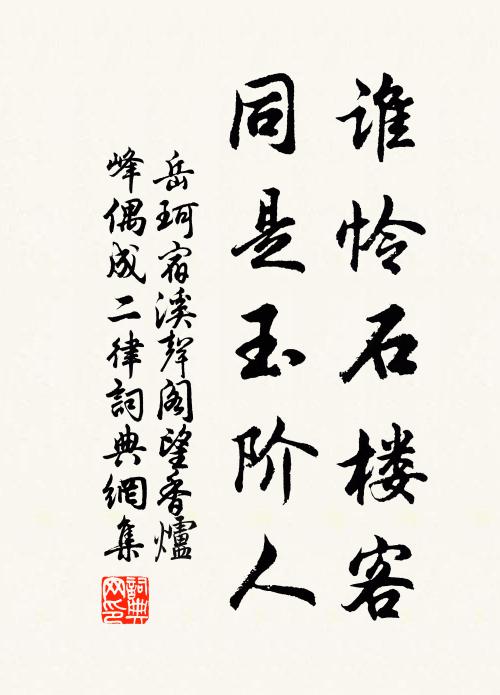 谁怜石楼客
同是玉阶人
岳珂宿溪聲阁望香爐
峰偶成二律詞典網集
詞典
网印